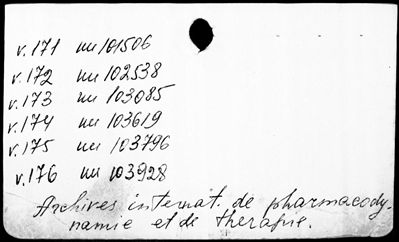 v.171 nu 101506
v.172 nu 102538
v.173 nu 103085
v.174 nu 103619
v.175 nu 103796
v.176 nu 103928
Archives internat. de pharmacody-
namie et de therapie.